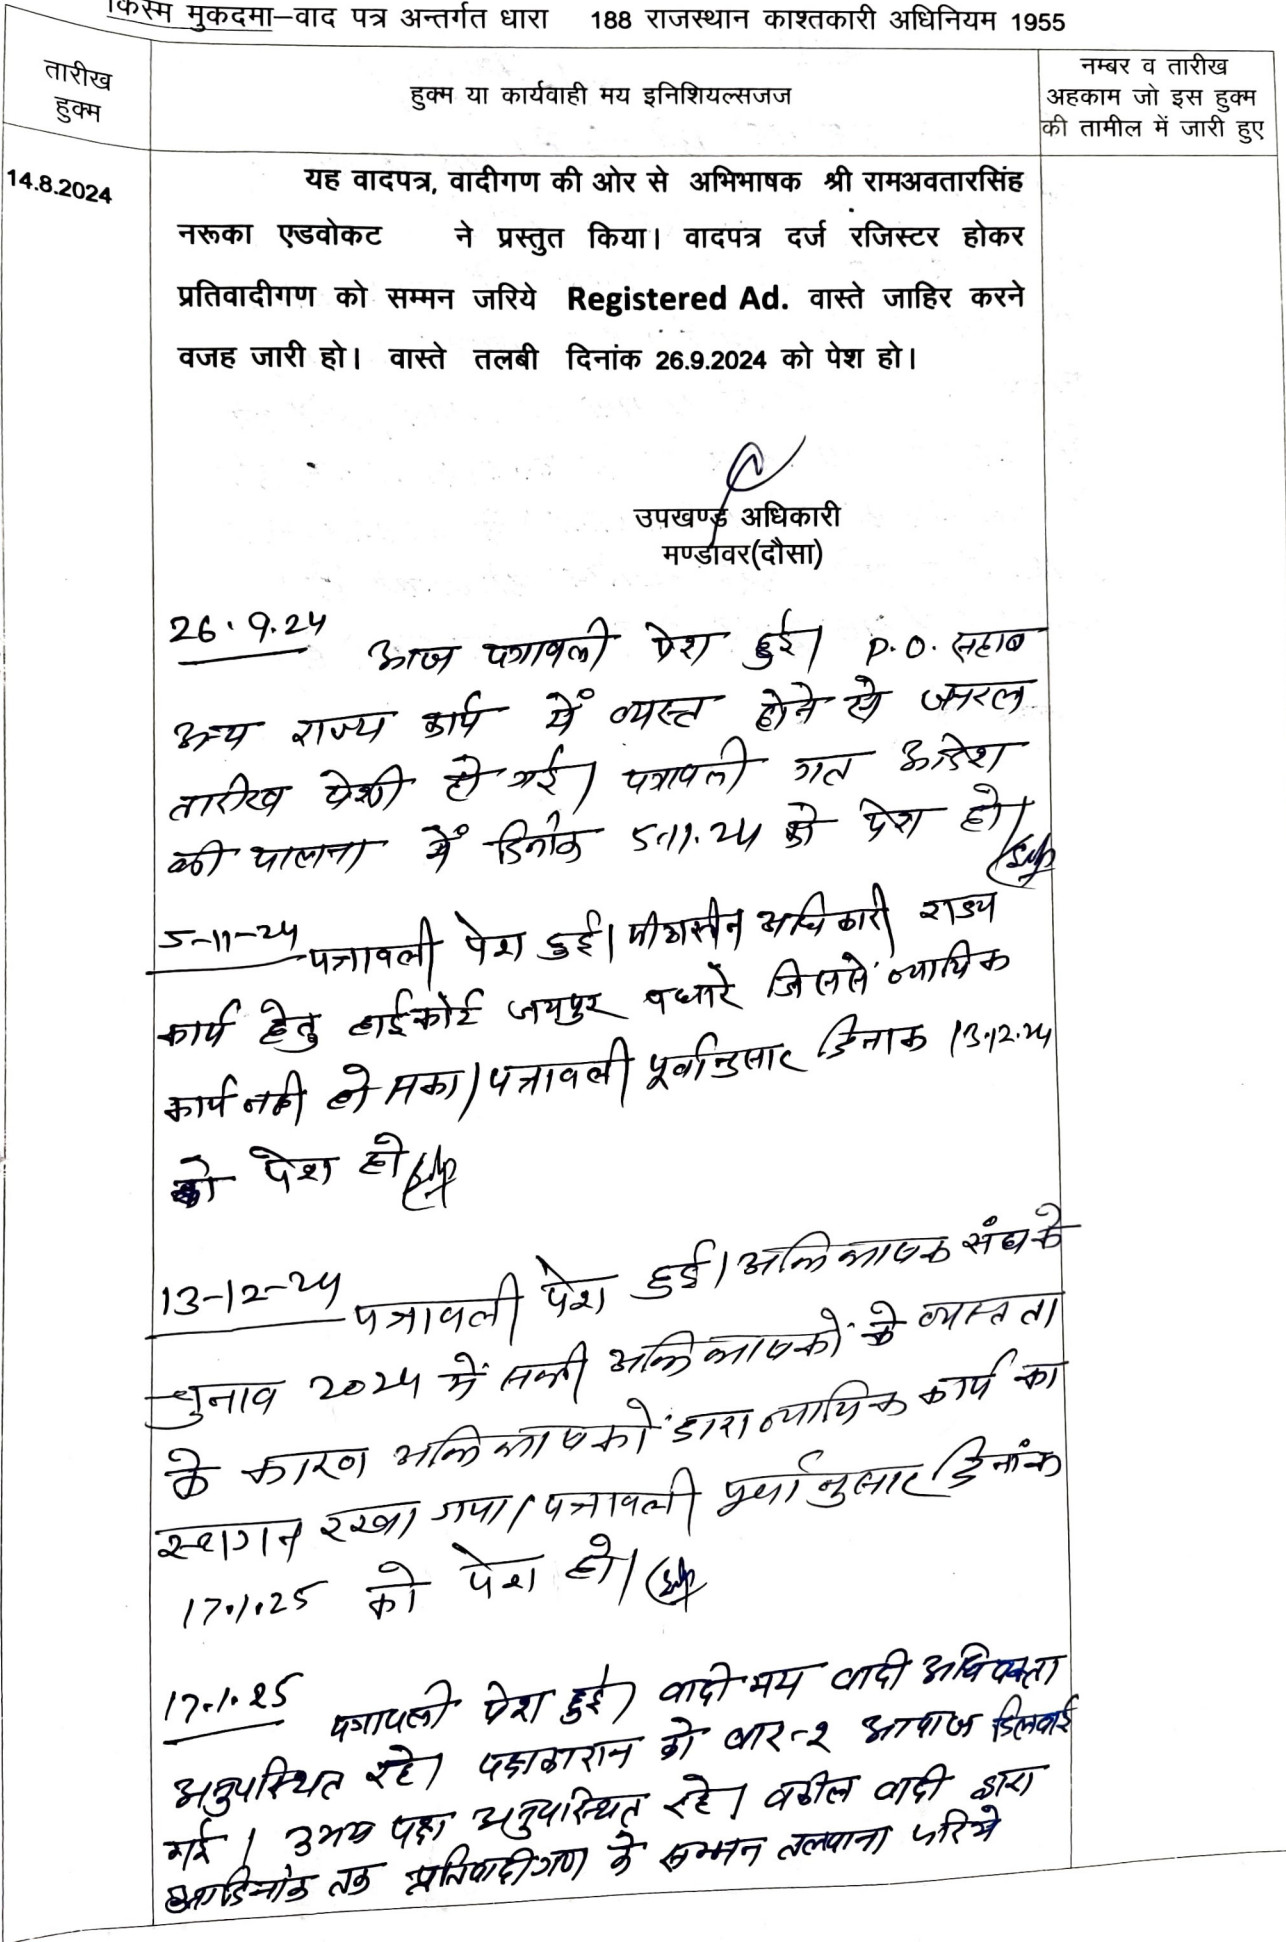 किस्म मुकदमा–वाद पत्र अन्तर्गत धारा 188 राजस्थान काश्तकारी अधिनियम 1955
तारीख
हुक्म
हुक्म या कार्यवाही मय इनिशियल्सजज
नम्बर व तारीख
अहकाम जो इस हुक्म
की तामील में जारी हुए
14.8.2024
यह वादपत्र, वादीगण की ओर से अभिभाषक श्री रामअवतारसिंह
नरूका एडवोकट ने प्रस्तुत किया। वादपत्र दर्ज रजिस्टर होकर
प्रतिवादीगण को सम्मन जरिये Registered Ad. वास्ते जाहिर करने
वजह जारी हो। वास्ते तलबी दिनांक 26.9.2024 को पेश हो।
उपखण्ड अधिकारी
मण्डावर(दौसा)
26.9.24 आज पत्रावली पेश हुई। P.O. सहाब
अन्य राज्य कार्य में व्यस्त होने से जनरल
तारीख पेशी हो गई। पत्रावली गत आदेश
की पालना में दिनांक 5.11.24 को पेश हो।
5-11-24 पत्रावली पेश हुई। पीठासीन अधिकारी राज्य
कार्य हेतु हाईकोर्ट जयपुर पधारे जिससे न्यायिक
कार्य नही हो सका। पत्रावली पूर्वानुसार दिनाक 13.12.24
को पेश हो।
13-12-24 पत्रावली पेश हुई। अभिभाषक संघ के
चुनाव 2024 में सभी अभिभाषकों के व्यस्तता
के कारण अभिभाषकों द्वारा न्यायिक कार्य का
स्थगन रखा गया। पत्रावली पूर्वानुसार दिनांक
17.1.25 को पेश हो।
17.1.25 पत्रावली पेश हुई। वादी मय वादी अधिवक्ता
अनुपस्थित रहे। पक्षकारान को बार-२ आवाज दिलवाई
गई। उभय पक्ष अनुपस्थित रहे। वकील वादी द्वारा
आदिनांक तक प्रतिवादीगण के सम्मन तलवाना जरिये